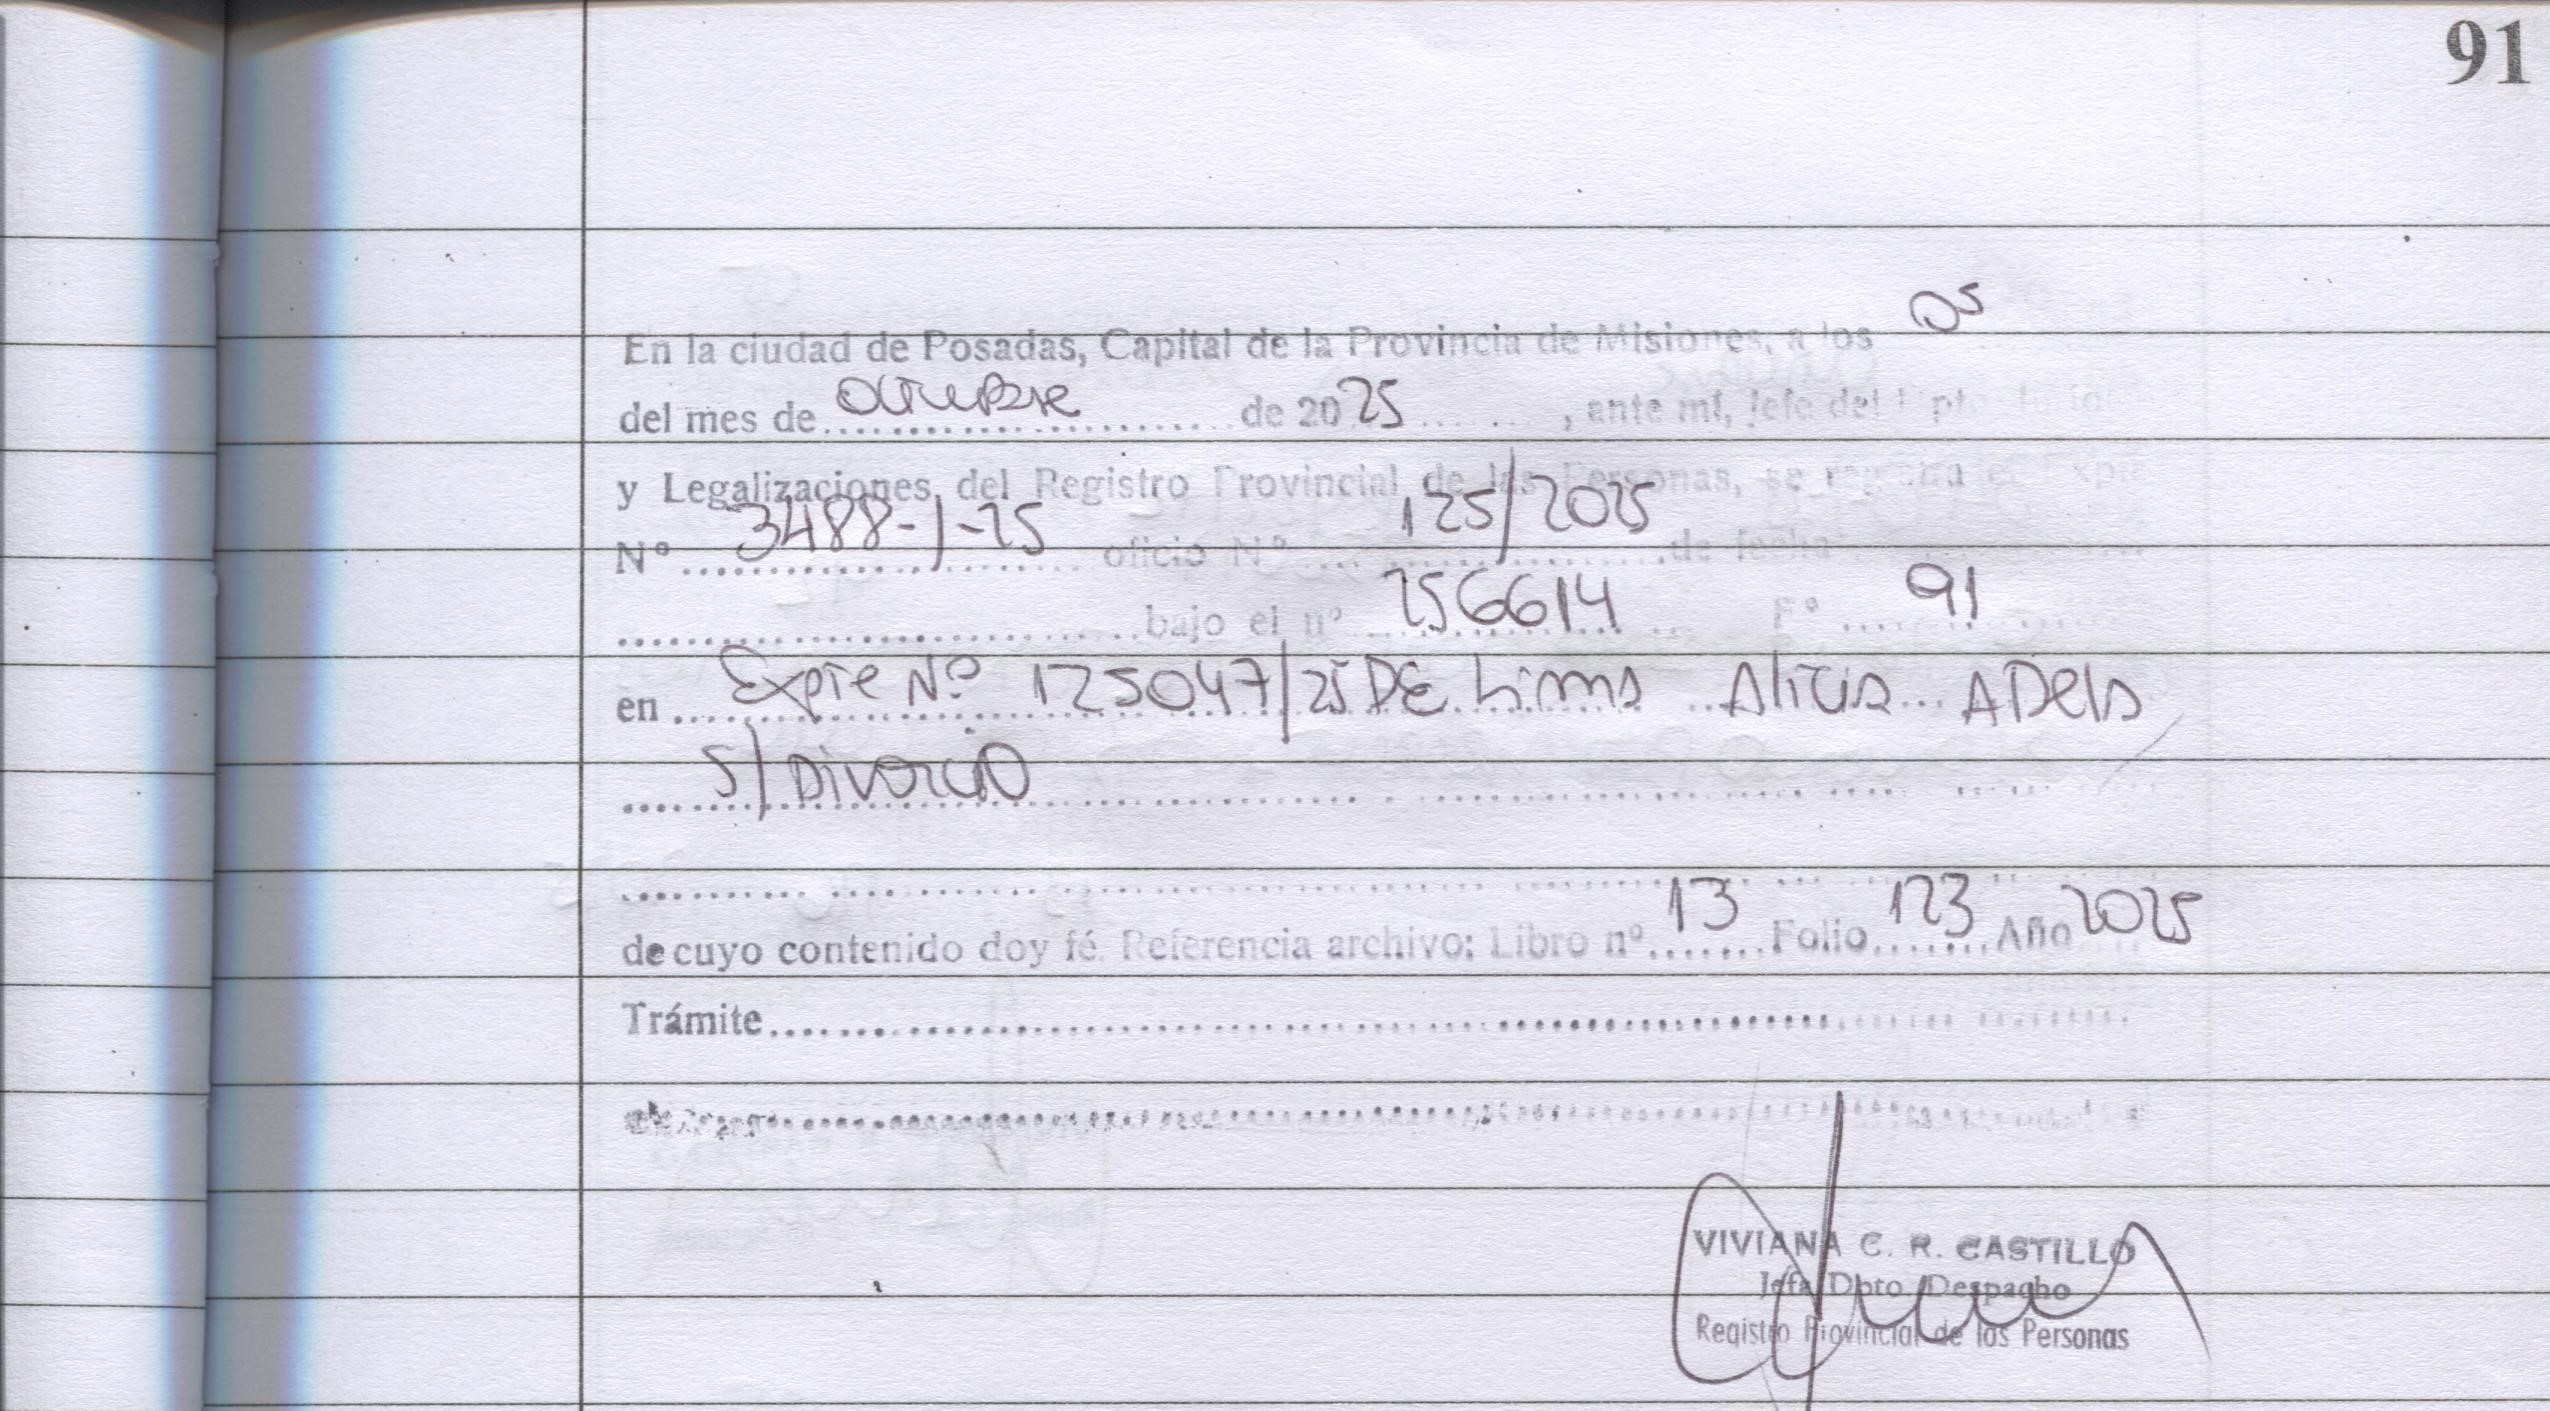 91
En la ciudad de Posadas, Capital de la Provincia de Misiones, a los 05
del mes de octubre de 2025, ante mí, Jefe del Dpto.
y Legalizaciones del Registro Provincial de las Personas, se registra el Expte
Nº 3488-J-25 oficio Nº 125/2025 de fecha
bajo el nº 256614 Fº 91
en Expte Nº 125047/25 DE Lima Alicia Adela
S/ Divorcio
de cuyo contenido doy fé. Referencia archivo: Libro nº 13 Folio 123 Año 2025
Trámite
VIVIANA C. R. CASTILLO
Jefa Dpto. Despacho
Registro Provincial de las Personas